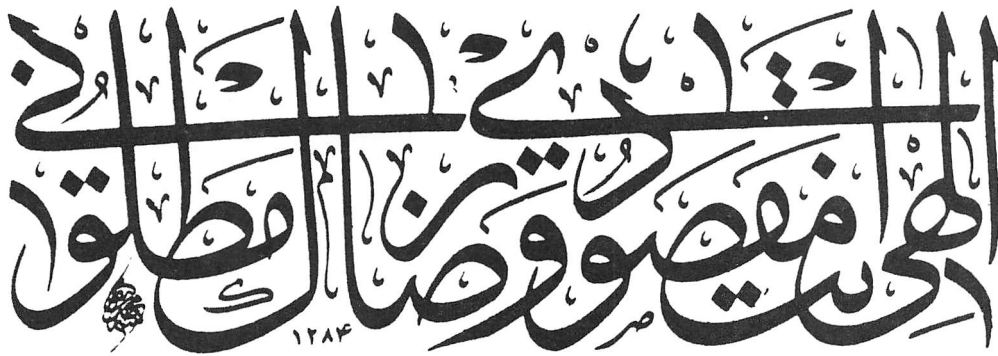 الهي انت مقصودي ورضاك مطلوبي
١٢٨۴